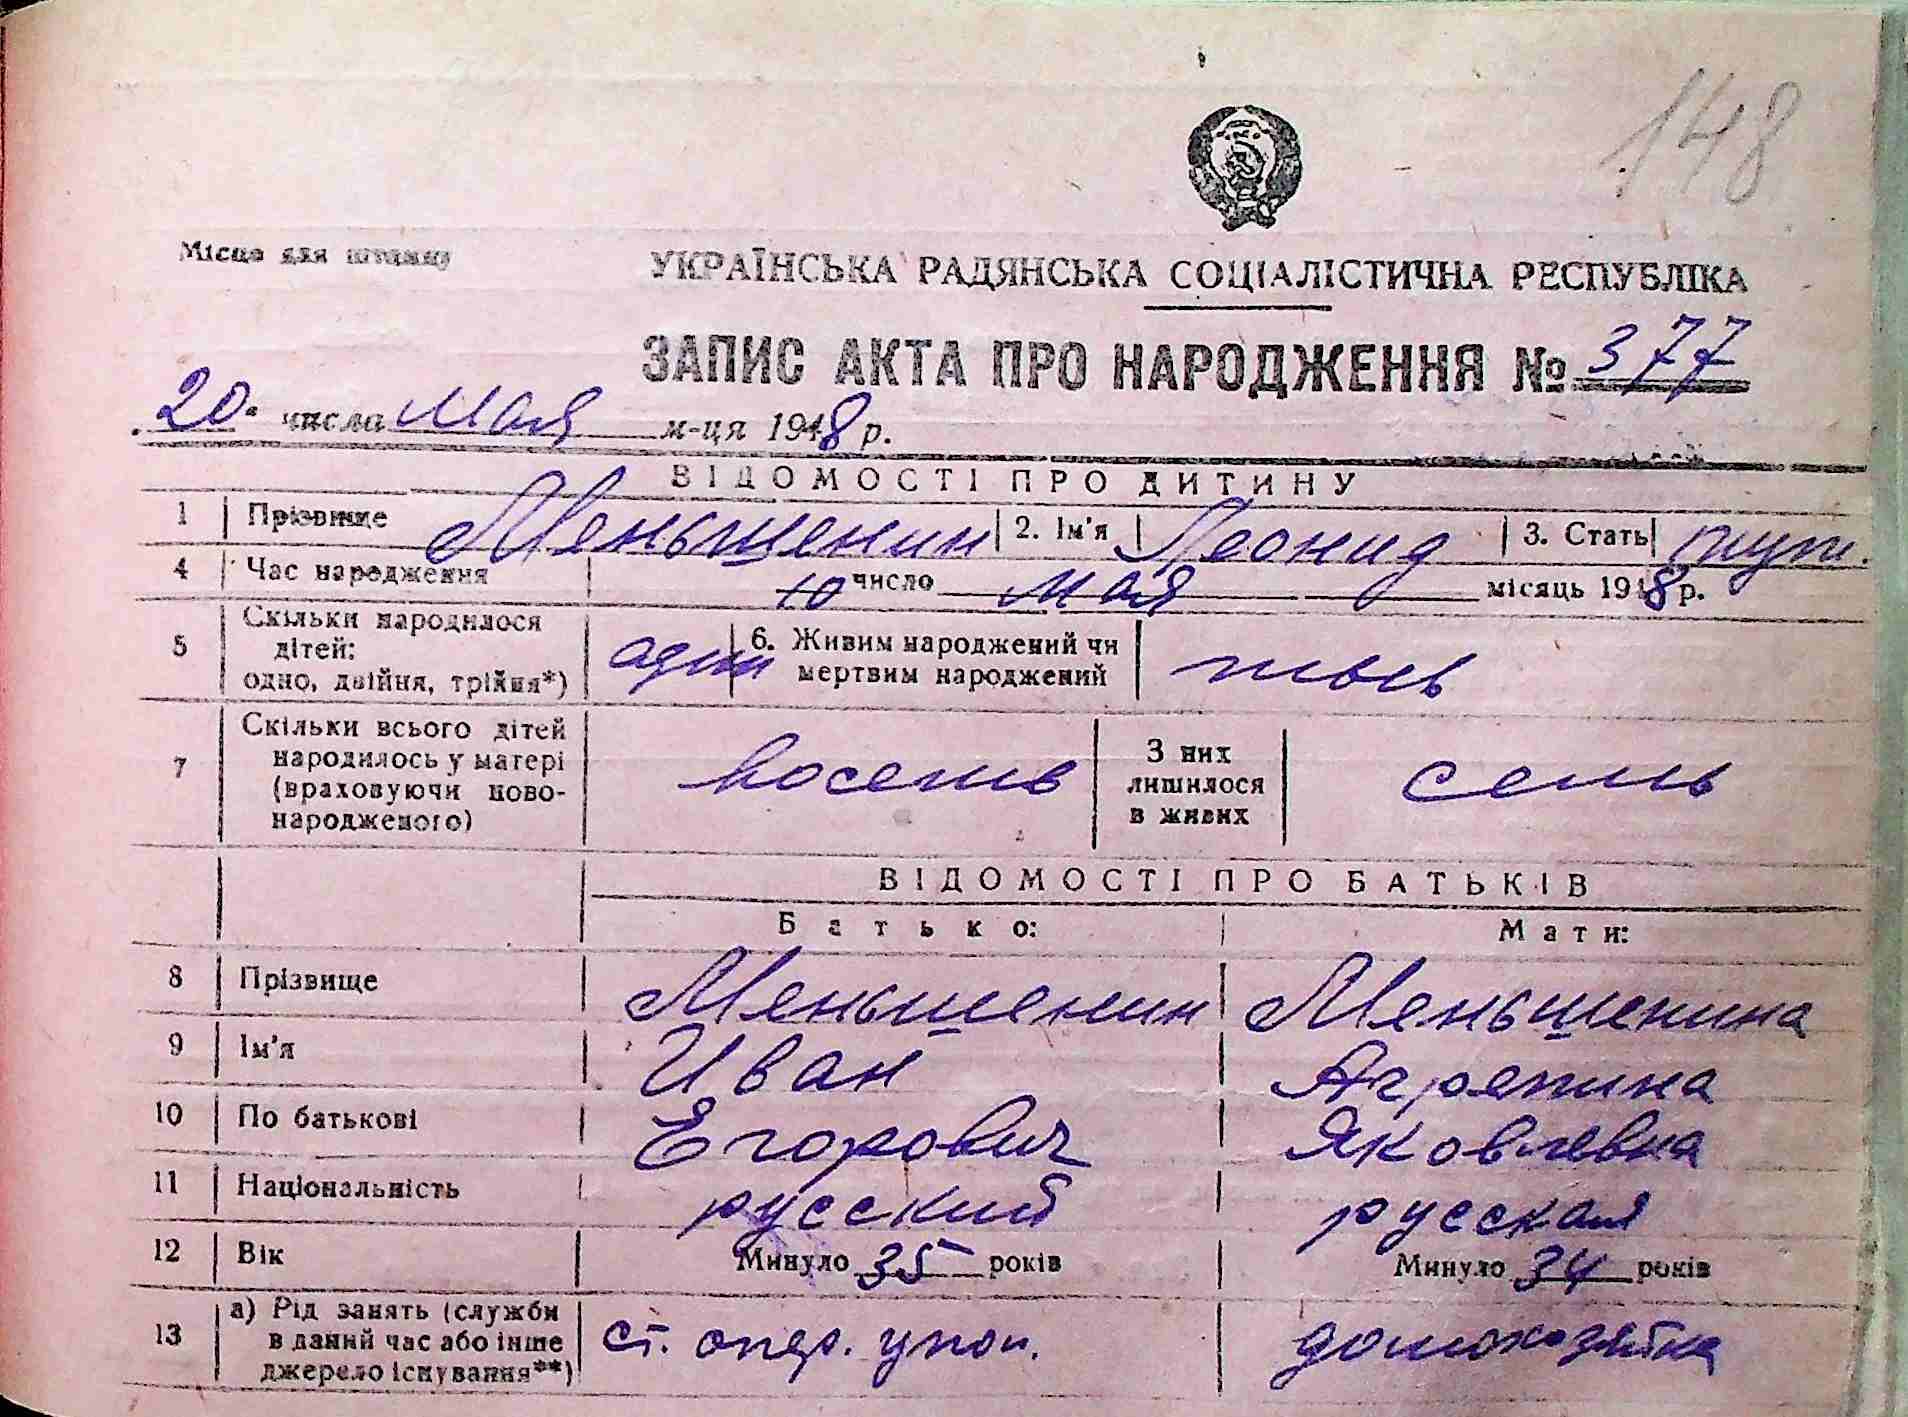 148
Місце для штампу
УКРАЇНСЬКА РАДЯНСЬКА СОЦІАЛІСТИЧНА РЕСПУБЛІКА
ЗАПИС АКТА ПРО НАРОДЖЕННЯ № 377
20 числа мая м-ця 1948 р.
ВІДОМОСТІ ПРО ДИТИНУ
1 Прізвище Меньшенин 2. Ім'я Леонид 3. Стать муж.
4 Час народження 10 число мая місяць 1948 р.
5 Скільки народилося дітей: одно, двійня, трійня*) один 6. Живим народжений чи мертвим народжений живым
7 Скільки всього дітей народилось у матері (враховуючи ново-народженого) восемь З них лишилося в живих семь
ВІДОМОСТІ ПРО БАТЬКІВ
Батько: Мати:
8 Прізвище Меньшенин Меньшенина
9 Ім'я Иван Агрепина
10 По батькові Егорович Яковлевна
11 Національність русский русская
12 Вік Минуло 35 років Минуло 34 років
13 а) Рід занять (служби в даний час або інше джерело існування**) ст. опер. упол. домохозяйка